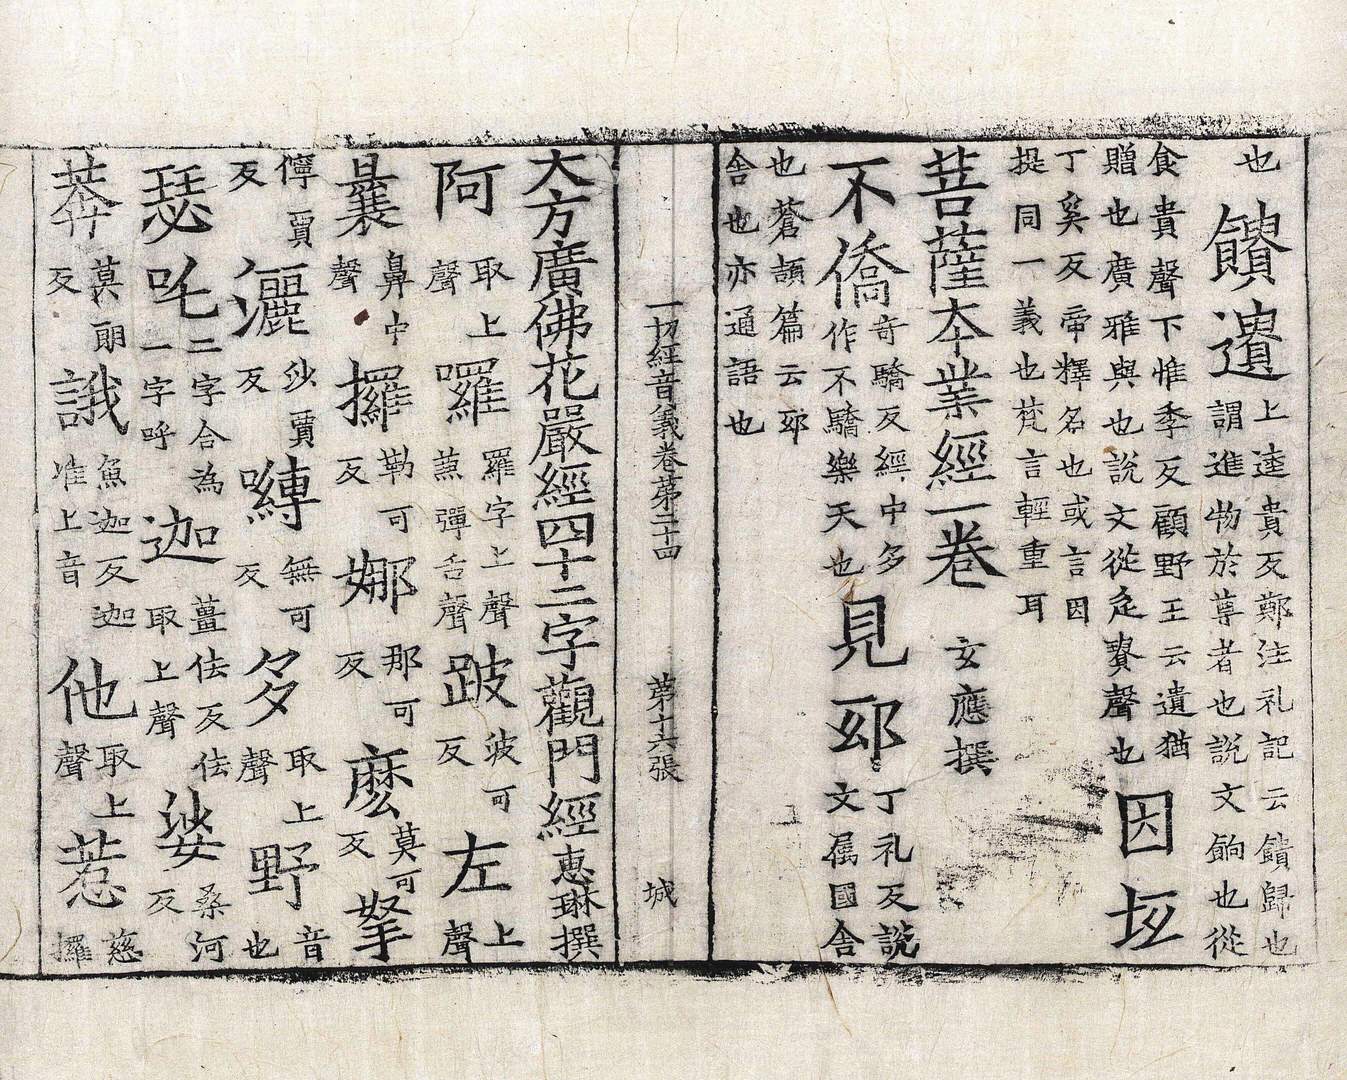 也饋遺上逵貴反鄭注礼記云饋歸也謂進物於尊者也說文餉也從
食貴聲下惟季反顧野王云遺猶贈也廣雅與也說文從辵貴聲也因坻
丁奚反帝釋名也或言因提同一義也梵言輕重耳
菩薩本業經一卷 玄應撰
不僑奇驕反經中多作不驕樂天也見邸丁礼反說文属國舍
也蒼頡篇云邸舍也亦通語也
一切經音義卷第二十四 第十六張 城
大方廣佛花嚴經四十二字觀門經惠琳撰
阿取上聲囉羅字上聲兼彈舌聲跛波可反左上聲
曩鼻中聲攞勒可反娜那可反麽莫可反拏
儜賈反灑沙賈反嚩無可反多取上聲野音也
瑟吒二字合為一字呼迦薑佉反佉取上聲娑桑河反
莽莫朗反誐魚迦反迦准上音他取上聲惹慈攞